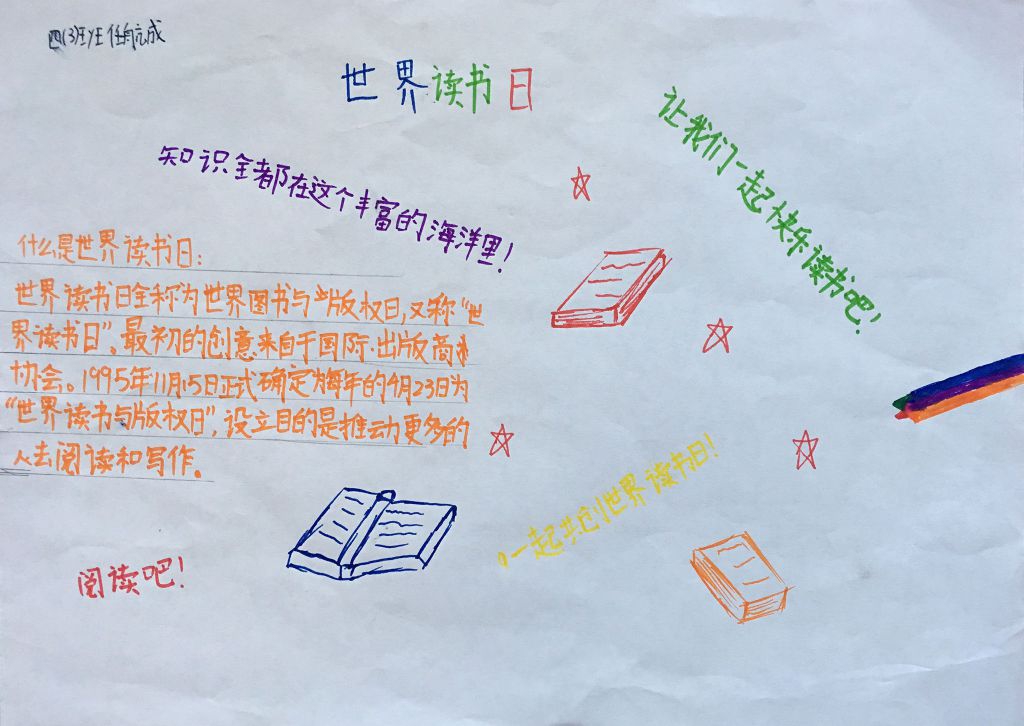 四(3)班 任航成
世界读书日
知识全都在这个丰富的海洋里!
让我们一起快乐读书吧!
什么是世界读书日:
世界读书日全称为世界图书与版权日,又称“世
界读书日”、最初的创意来自于国际出版商
协会。1995年11月15日正式确定每年的4月23日为
“世界读书与版权日”,设立目的是推动更多的
人去阅读和写作。
一起共创世界读书日!
阅读吧!